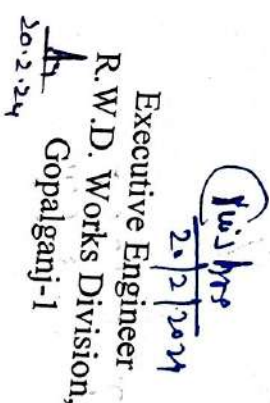 20/2/2024
Executive Engineer
R.W.D. Works Division,
Gopalganj-1
20.2.24